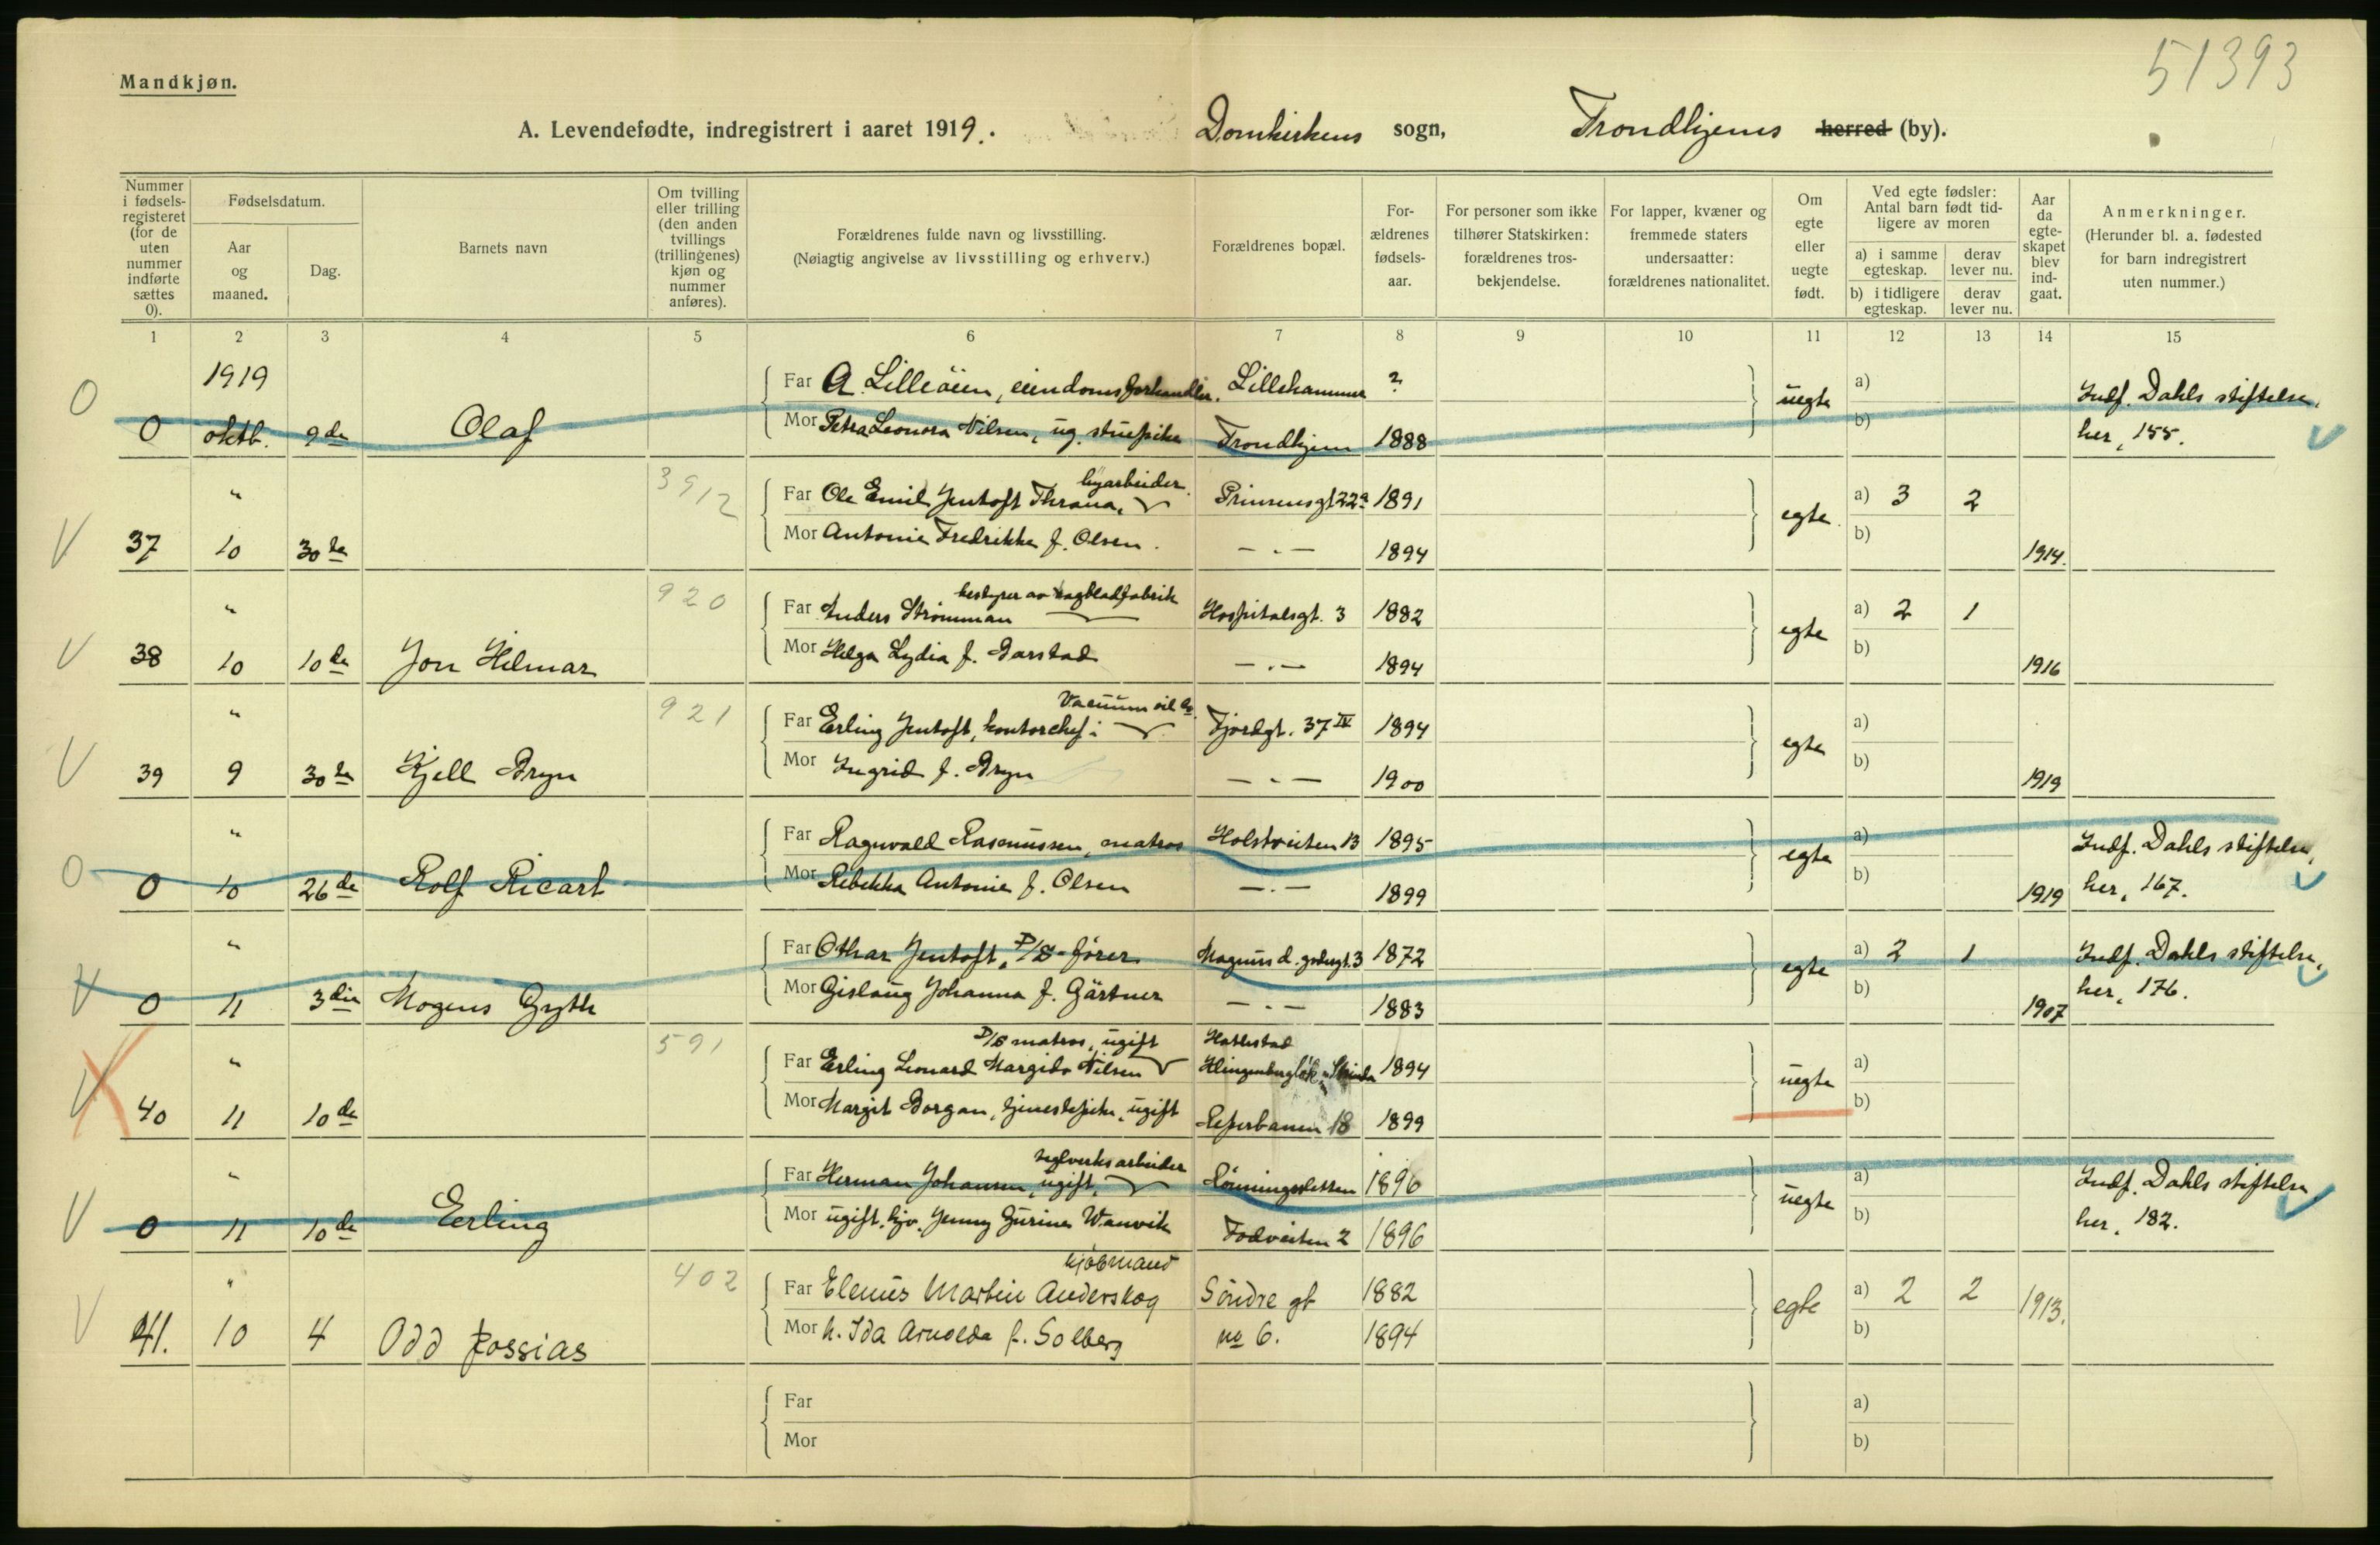 51393
Mandkjøn.
A. Levendefødte, indregistrert i aaret 1919. Domkirkens sogn, Trondhjems herred (by).
Nummer i fødselsregisteret (for de uten nummer indførte sættes 0).
Fødselsdatum.
Aar og maaned.
Dag.
Barnets navn
Om tvilling eller trilling (den anden tvillings (trillingenes) kjøn og nummer anføres).
Forældrenes fulde navn og livsstilling.
(Nøiagtig angivelse av livsstilling og erhverv.)
Forældrenes bopæl.
Forældrenes fødselsaar.
For personer som ikke tilhører Statskirken: forældrenes trosbekjendelse.
For lapper, kvæner og fremmede staters undersaatter: forældrenes nationalitet.
Om egte eller uegte født.
Ved egte fødsler: Antal barn født tidligere av moren
a) i samme egteskap. derav lever nu.
b) i tidligere egteskap. derav lever nu.
Aar da egteskapet blev indgaat.
Anmerkninger.
(Herunder bl. a. fødested for barn indregistrert uten nummer.)
1 2 3 4 5 6 7 8 9 10 11 12 13 14 15
1919
O Far A. Lilleöien, eiendomsforhandler. Lillehammer ? uegte a) Indf. Dahls stiftelse,
0 oktb. 9de Olaf Mor Petra Leonora Nilsen, ug. stuepike Trondhjem 1888 b) her, 155.
" 3912 byarbeider.
Far Ole Emil Jentoft Thrana, Prinsensgt 22a 1891 egte a) 3 2
V 37 10 30te Mor Antonie Fredrikke f. Olsen. — . — 1894 b) 1914.
" 920 bestyrer av sagbladfabrik
Far Anders Strömman Hospitalsgt. 3 1882 egte a) 2 1
V 38 10 10de Jon Hilmar Mor Helga Lydia f. Barstad — . — 1894 b) 1916
" 921 Vacuum oil Co.
Far Erling Jentoft, kontorchef i Fjordgt. 37 IV 1894 egte a)
V 39 9 30te Kjell Bryn Mor Ingrid f. Bryn — . — 1900 b) 1919
" Far Ragnvald Rasmussen, matros Holstveiten 13 1895 egte a) Indf. Dahls stiftelse,
O 0 10 26de Rolf Ricart Mor Rebekka Antonie f. Olsen — . — 1899 b) 1919 her, 167.
" Far Othar Jentoft, D/S-förer Magnus d. godesgt. 3 1872 egte a) 2 1 Indf. Dahls stiftelse,
V 0 11 3die Mogens Gryth Mor Gislaug Johanna f. Gärtner — . — 1883 b) 1907 her, 176.
" 591 D/S matros, ugift
Far Erling Leonard Margido Nilsen 1894 uegte a)
V 40 11 10de Mor Margit Borgan, tjenestepike, ugift Reperbanen 18 1899 b)
" teglverksarbeider
Far Herman Johansen, ugift, Rönningsletten 1896 uegte a) Indf. Dahls stiftelse
V 0 11 10de Erling Mor ugift. tjp. Jenny Gurine Wanvik Fodveiten 2 1896 b) her, 182.
" 402 kjöbmand
Far Elenus Martin Anderskog Söndre gt 1882 egte a) 2 2 1913.
V 41. 10 4 Odd Jossias Mor h. Ida Arnolda f. Solberg no 6. 1894 b)
Far a)
Mor b)